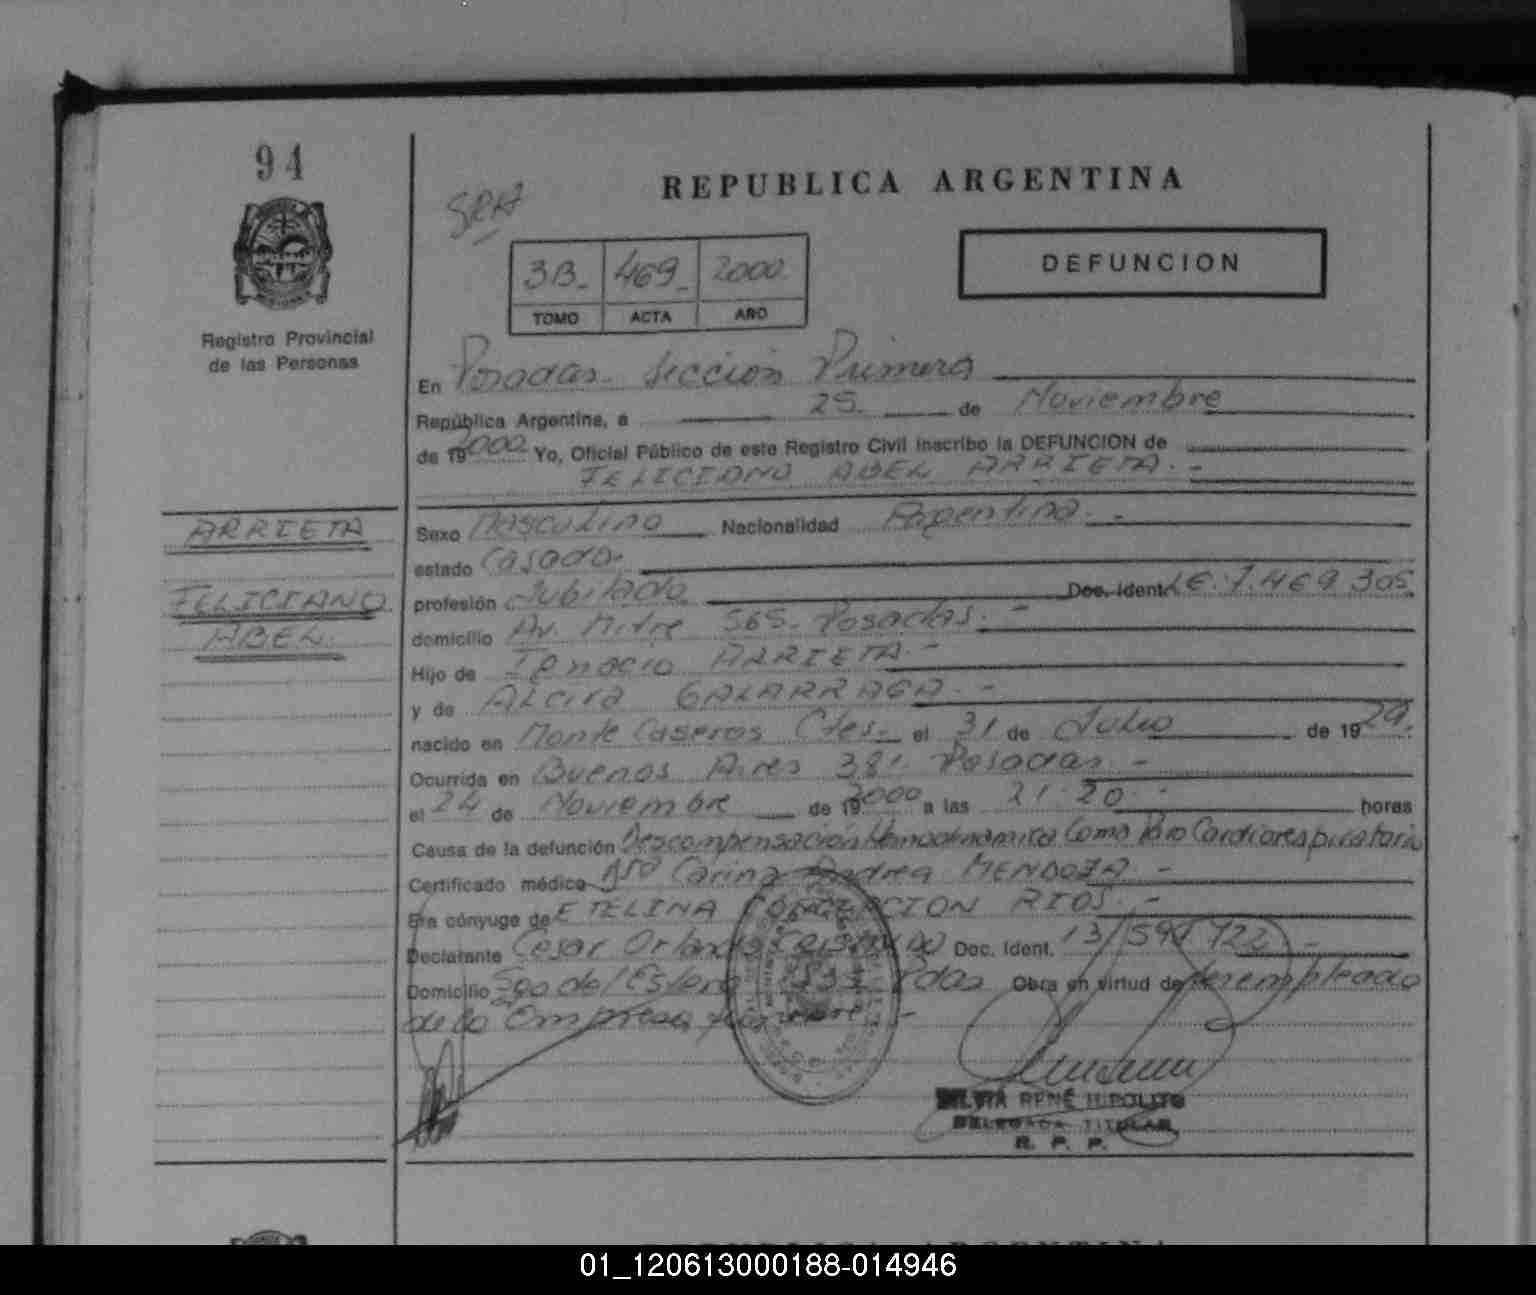 94
REPUBLICA ARGENTINA
SRH
3B- 469- 2000
TOMO ACTA AÑO
DEFUNCION
Registro Provincial
de las Personas
En Posadas- Sección Primera
República Argentina, a 25 de Noviembre
de 19 2000 Yo, Oficial Público de este Registro Civil inscribo la DEFUNCION de
FELICIANO ABEL ARRIETA.-
ARRIETA
FELICIANO
ABEL.
Sexo Masculino Nacionalidad Argentina.-
estado Casado-
profesión Jubilado Doc. Ident. L.E. 7.469.305
domicilio Av. Mitre 565- Posadas.-
Hijo de Ignacio ARRIETA.-
y de Alcira GALARRAGA.-
nacido en Monte Caseros Ctes.- el 31 de Julio de 19 29.
Ocurrida en Buenos Aires 381 Posadas.-
el 24 de Noviembre de 19 2000 a las 21.20 horas
Causa de la defunción Descompensación Hemodinamica Coma Paro Cardiorespiratorio
Certificado médico Carina Andrea MENDOZA.-
Era cónyuge de ETELINA RIOS.-
Declarante Cesar Orlando Doc. Ident. 13/591722-
Domicilio Sgo del Estero Pdas Obra en virtud de ser empleado
de la Empresa funebre.-
SILVIA RENÉ HIPOLITO
DELEGADA TITULAR
R. P. P.
REPUBLICA ARGENTINA
01_120613000188-014946